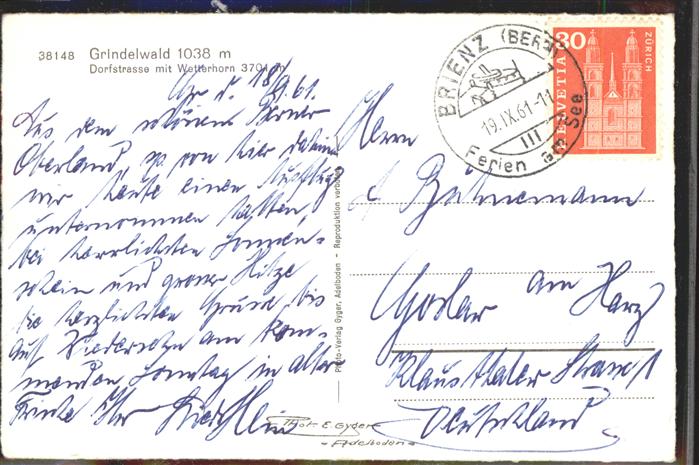 38148 Grindelwald 1038 m
Dorfstrasse mit Wetterhorn 3701 m
d. 18/9.61.
Aus dem schönen Berner
Oberland, wo von hier
wir heute einen Ausflug
unternommen hatten,
bei herrlichstem Sonnen-
schein und grosser Hitze
die herzlichsten Grüsse, bis
auf Wiedersehn am kom-
menden Sonntag in alter
Frische Ihr
Phot. E. Gyger
- Adelboden -
Photo-Verlag Gyger, Adelboden - Reproduktion verboten
BRIENZ (BERN)
19.IX.61-11
III
Ferien am See
30
HELVETIA
ZÜRICH
Herrn
Goslar am Harz
Klausthaler Strasse 1
Deutschland